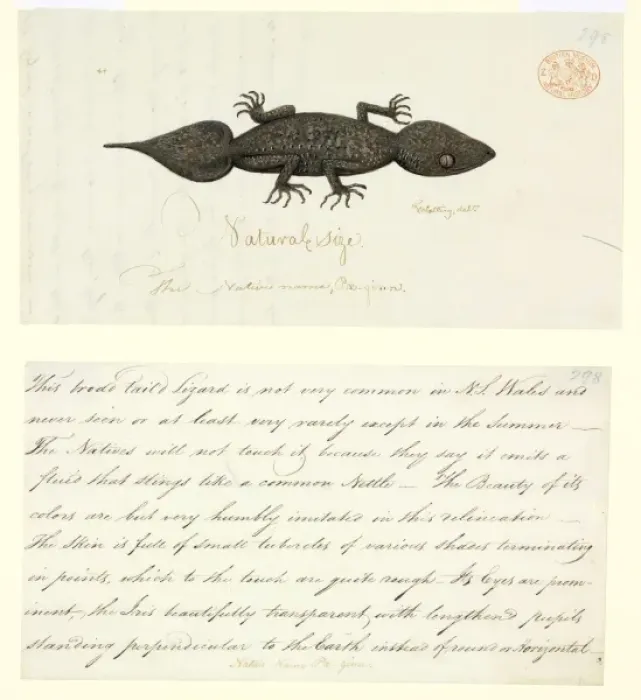 298
Watling, delt.
Natural size.
The Native name, Pa-ginna.
298
This broad tail'd Lizard is not very common in N.S. Wales and
never seen or at least very rarely except in the Summer —
The Natives will not touch it because they say it emits a
fluid that stings like a common Nettle — The Beauty of its
colors are but very humbly imitated in this delineation —
The Skin is full of small tubercles of various shades terminating
in points, which to the touch are quite rough — Its Eyes are prom-
inent, the Iris beautifully transparent with lengthen'd pupils
standing perpendicular to the Earth instead of round or Horizontal —
Native Name Pa-ginna